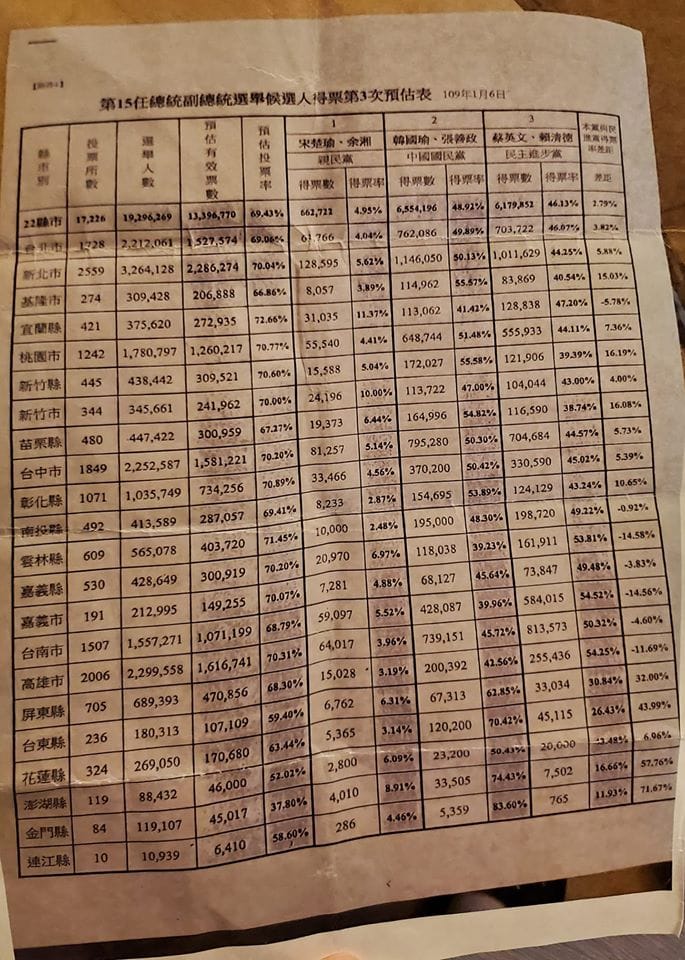 第15任總統副總統選舉候選人得票第3次預估表 109年1月6日
縣市別 投票所數 選舉人數 預估有效票數 預估投票率 1 2 3 本黨與民進黨得票率差距
宋楚瑜、余湘 韓國瑜、張善政 蔡英文、賴清德
親民黨 中國國民黨 民主進步黨
得票數 得票率 得票數 得票率 得票數 得票率 差距
22縣市 17,226 19,296,269 13,396,770 69.43% 662,722 4.95% 6,554,196 48.92% 6,179,852 46.13% 2.79%
台北市 1728 2,212,061 1,527,574 69.06% 4.04% 762,086 49.89% 703,722 46.07% 3.82%
新北市 2559 3,264,128 2,286,274 70.04% 128,595 5.62% 1,146,050 50.13% 1,011,629 44.25% 5.88%
基隆市 274 309,428 206,888 66.86% 8,057 3.89% 114,962 55.57% 83,869 40.54% 15.03%
宜蘭縣 421 375,620 272,935 72.66% 31,035 11.37% 113,062 41.42% 128,838 47.20% -5.78%
桃園市 1242 1,780,797 1,260,217 70.77% 55,540 4.41% 648,744 51.48% 555,933 44.11% 7.36%
新竹縣 445 438,442 309,521 70.60% 15,588 5.04% 172,027 55.58% 121,906 39.39% 16.19%
新竹市 344 345,661 241,962 70.00% 24,196 10.00% 113,722 47.00% 104,044 43.00% 4.00%
苗栗縣 480 447,422 300,959 67.27% 19,373 6.44% 164,996 54.82% 116,590 38.74% 16.08%
台中市 1849 2,252,587 1,581,221 70.20% 81,257 5.14% 795,280 50.30% 704,684 44.57% 5.73%
彰化縣 1071 1,035,749 734,256 70.89% 33,466 4.56% 370,200 50.42% 330,590 45.02% 5.39%
南投縣 492 413,589 287,057 69.41% 8,233 2.87% 154,695 53.89% 124,129 43.24% 10.65%
雲林縣 609 565,078 403,720 71.45% 10,000 2.48% 195,000 48.30% 198,720 49.22% -0.91%
嘉義縣 530 428,649 300,919 70.20% 20,970 6.97% 118,038 39.23% 161,911 53.81% -14.58%
嘉義市 191 212,995 149,255 70.07% 7,281 4.88% 68,127 45.64% 73,847 49.48% -3.83%
台南市 1507 1,557,271 1,071,199 68.79% 59,097 5.52% 428,087 39.96% 584,015 54.52% -14.56%
高雄市 2006 2,299,558 1,616,741 70.31% 64,017 3.96% 739,151 45.72% 813,573 50.32% -4.60%
屏東縣 705 689,393 470,856 68.30% 15,028 3.19% 200,392 42.56% 255,436 54.25% -11.69%
台東縣 236 180,313 107,109 59.40% 6,762 6.31% 67,313 62.85% 33,034 30.84% 32.00%
花蓮縣 324 269,050 170,680 63.44% 5,365 3.14% 120,200 70.42% 45,115 26.43% 43.99%
澎湖縣 119 88,432 46,000 52.02% 2,800 6.09% 23,200 50.43% 20,000 43.48% 6.96%
金門縣 84 119,107 45,017 37.80% 4,010 8.91% 33,505 74.43% 7,502 16.66% 57.76%
連江縣 10 10,939 6,410 58.60% 286 4.46% 5,359 83.60% 765 11.93% 71.67%